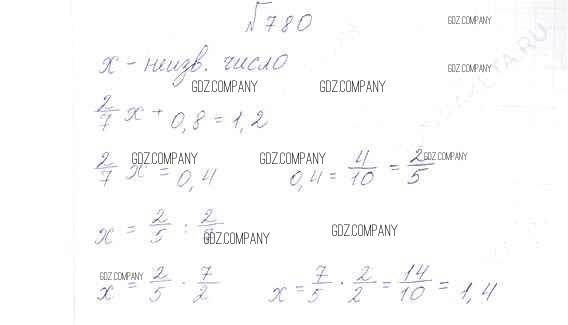 №780
GDZ.COMPANY
x - неизв. число
GDZ.COMPANY
GDZ.COMPANY GDZ.COMPANY
2/7 x + 0,8 = 1,2
GDZ.COMPANY GDZ.COMPANY GDZ.COMPANY
2/7 x = 0,4 0,4 = 4/10 = 2/5
x = 2/5 : 2/
GDZ.COMPANY GDZ.COMPANY
GDZ.COMPANY
x = 2/5 · 7/2 x = 7/5 · 2/2 = 14/10 = 1,4